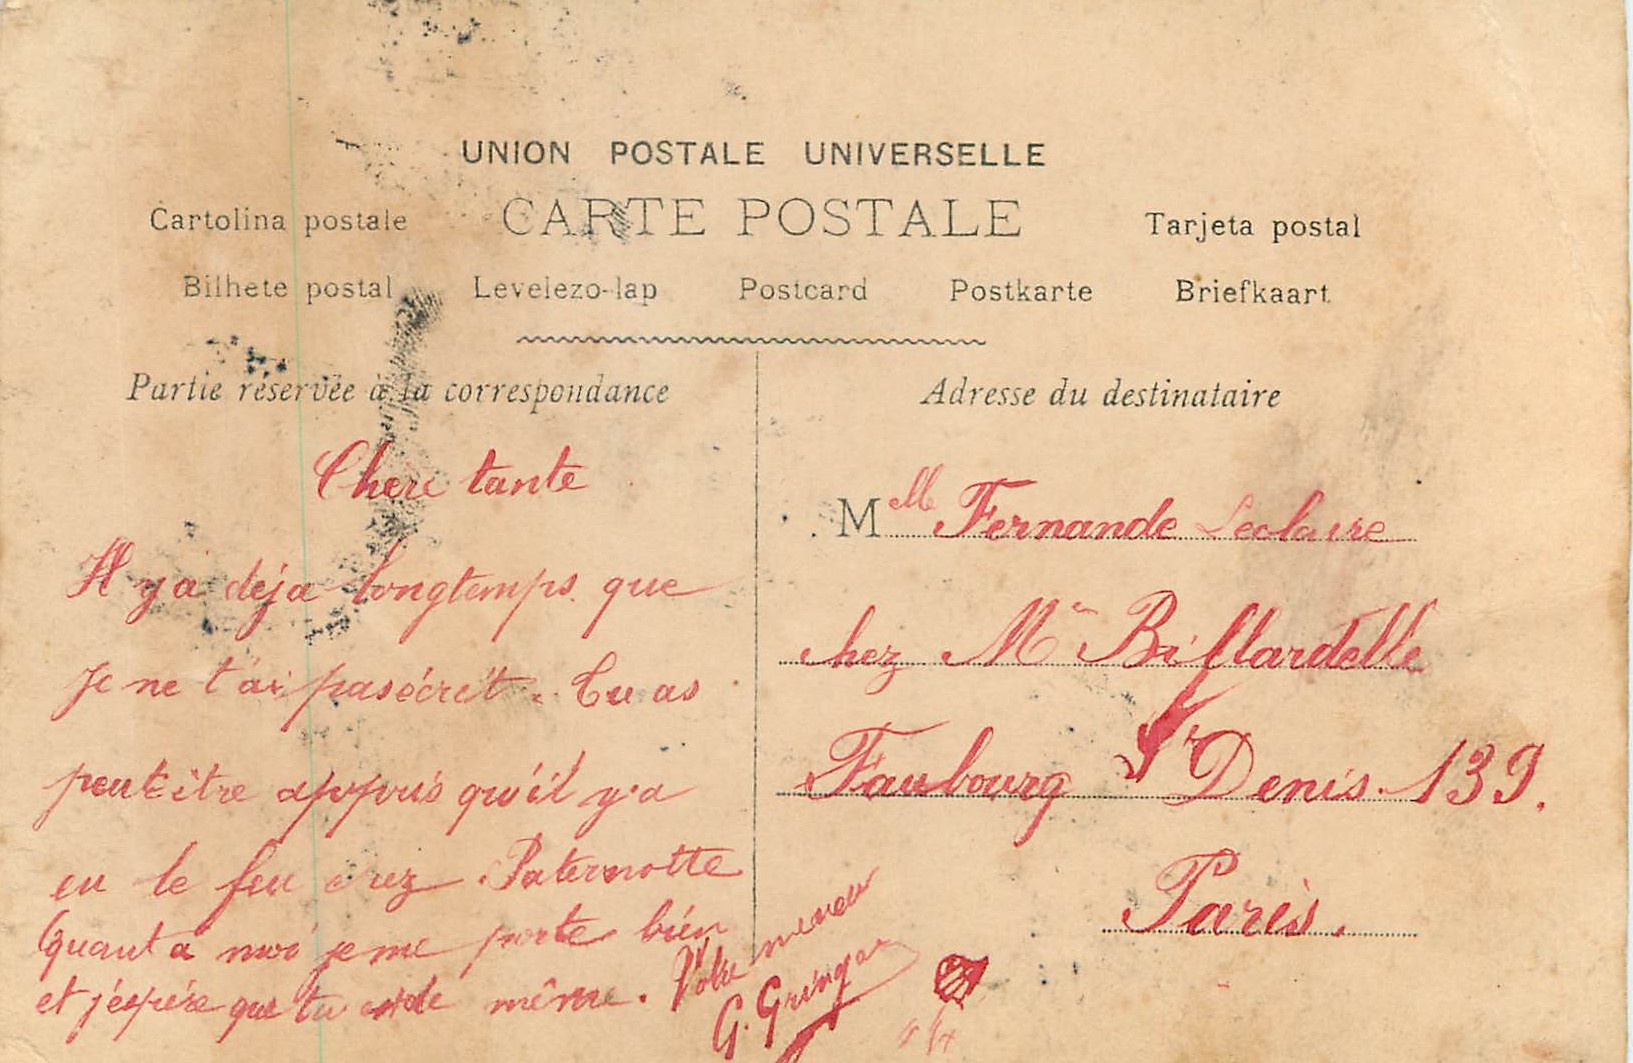 UNION POSTALE UNIVERSELLE
CARTE POSTALE
Cartolina postale
Tarjeta postal
Bilhete postal Levelezo-lap Postcard Postkarte Briefkaart
Partie réservée à la correspondance
Chere tante
Il y a déja longtemps que
Je ne t'ai pas écrit. Tu as
peut être appris qu'il y a
eu le feu chez Paternotte
Quant a moi je me porte bien
et j'espére que tu de même. Votre
G. Gringa
Adresse du destinataire
Mlle Fernande Leclaire
chez Mr Billardelle
Faubourg St Denis. 139.
Paris.